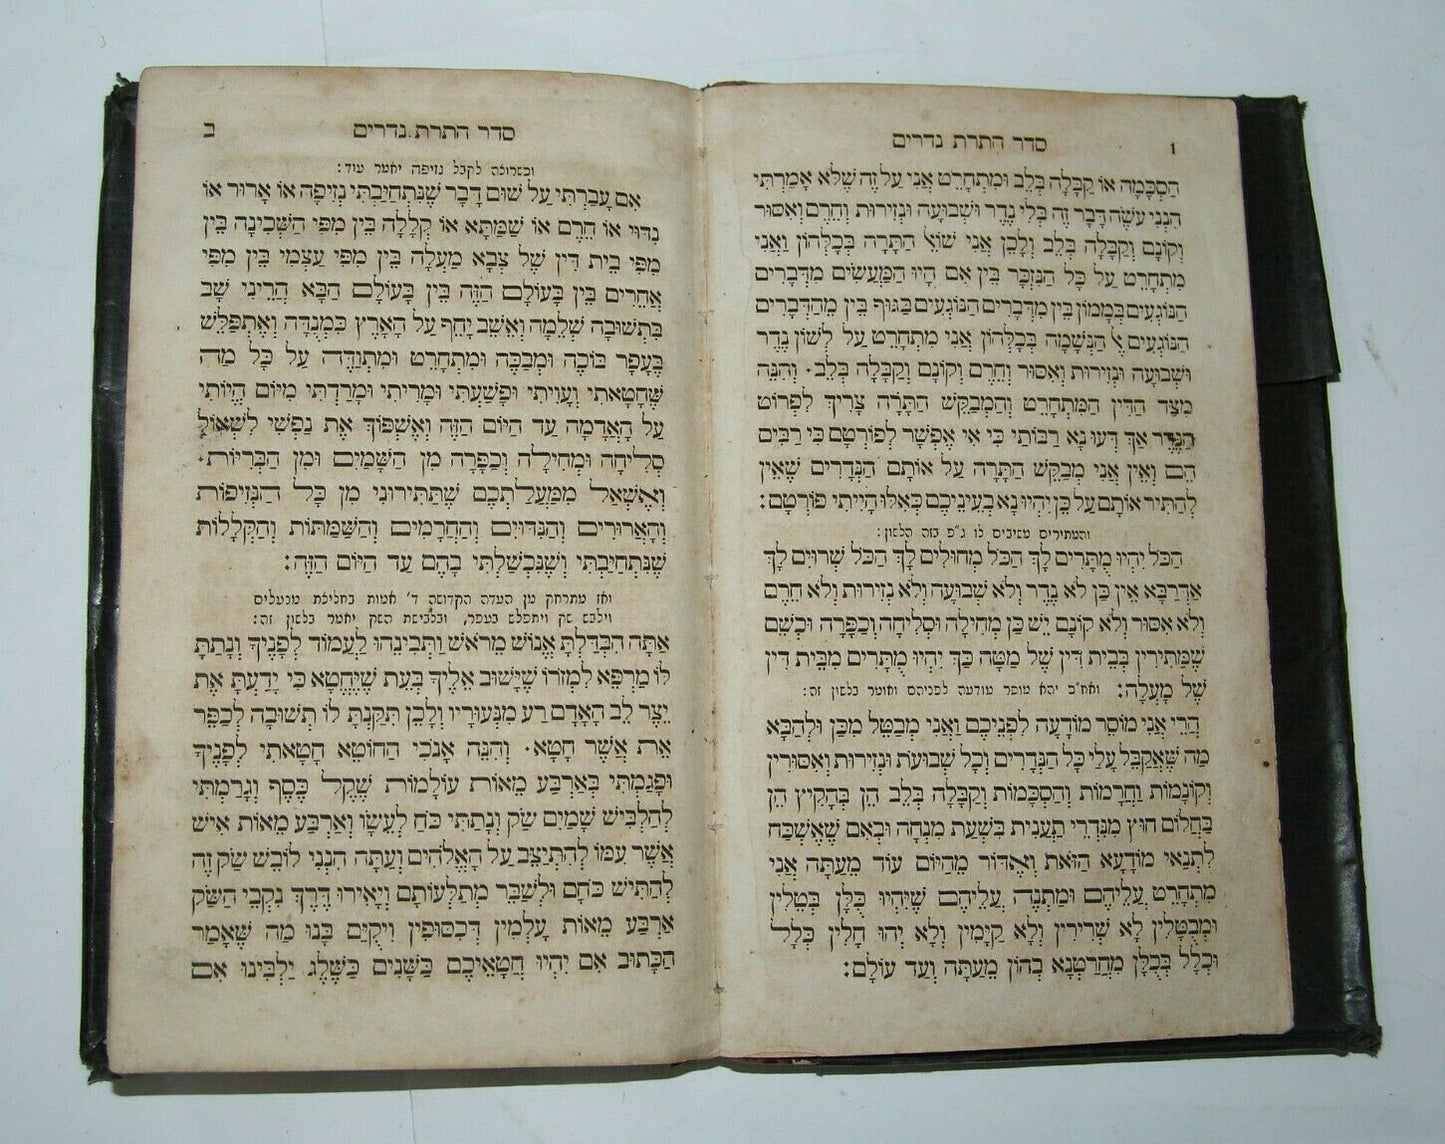 1
סדר התרת נדרים
הַסְכָּמָה אוֹ קַבָּלָה בְּלֵב וּמִתְחָרֵט אֲנִי עַל זֶה שֶׁלֹּא אָמַרְתִּי
הִנְנִי עֹשֶׂה דָּבָר זֶה בְּלִי נֶדֶר וּשְׁבוּעָה וּנְזִירוּת וְחֵרֶם וְאִסּוּר
וְקוֹנָם וְקַבָּלָה בְּלֵב וְלָכֵן אֲנִי שׁוֹאֵל הַתָּרָה בְּכֻלְּהוֹן וַאֲנִי
מִתְחָרֵט עַל כָּל הַנִּזְכָּר בֵּין אִם הָיוּ הַמַּעֲשִׂים מִדְּבָרִים
הַנּוֹגְעִים בְּמָמוֹן בֵּין מִדְּבָרִים הַנּוֹגְעִים בַּגּוּף בֵּין מֵהַדְּבָרִים
הַנּוֹגְעִים אֶל הַנְּשָׁמָה בְּכֻלְּהוֹן אֲנִי מִתְחָרֵט עַל לְשׁוֹן נֶדֶר
וּשְׁבוּעָה וּנְזִירוּת וְאִסּוּר וְחֵרֶם וְקוֹנָם וְקַבָּלָה בְּלֵב. וְהִנֵּה
מִצַּד הַדִּין הַמִּתְחָרֵט וְהַמְבַקֵּשׁ הַתָּרָה צָרִיךְ לִפְרוֹט
הַנֶּדֶר אַךְ דְּעוּ נָא רַבּוֹתַי כִּי אִי אֶפְשָׁר לְפוֹרְטָם כִּי רַבִּים
הֵם וְאֵין אֲנִי מְבַקֵּשׁ הַתָּרָה עַל אוֹתָם הַנְּדָרִים שֶׁאֵין
לְהַתִּיר אוֹתָם עַל כֵּן יִהְיוּ נָא בְעֵינֵיכֶם כְּאִלּוּ הָיִיתִי פוֹרְטָם:
והמתירים משיבים לו ג"פ בזה הלשון:
הַכֹּל יִהְיוּ מֻתָּרִים לָךְ הַכֹּל מְחוּלִים לָךְ הַכֹּל שְׁרוּיִם לָךְ
אַדְרַבָּא אֵין כַּן לֹא נֶדֶר וְלֹא שְׁבוּעָה וְלֹא נְזִירוּת וְלֹא חֵרֶם
וְלֹא אִסּוּר וְלֹא קוֹנָם יֵשׁ כַּן מְחִילָה וּסְלִיחָה וְכַפָּרָה וּכְשֵׁם
שֶׁמַּתִּירִין בְּבֵית דִּין שֶׁל מַטָּה כַּךְ יִהְיוּ מֻתָּרִים מִבֵּית דִּין
שֶׁל מַעְלָה: ואח"כ יהא מוסר מודעה לפניהם ואומר בלשון זה:
הֲרֵי אֲנִי מוֹסֵר מוֹדָעָה לִפְנֵיכֶם וַאֲנִי מְבַטֵּל מִכַּן וּלְהַבָּא
מַה שֶּׁאֲקַבֵּל עָלַי כָּל הַנְּדָרִים וְכָל שְׁבוּעֹת וּנְזִירוּת וְאִסּוּרִין
וְקוֹנָמוֹת וַחֲרָמוֹת וְהַסְכָּמוֹת וְקַבָּלָה בְּלֵב הֵן בְּהָקִיץ הֵן
בַּחֲלוֹם חוּץ מִנִּדְרֵי תַעֲנִית בִּשְׁעַת מִנְחָה וּבְאִם שֶׁאֶשְׁכַּח
לִתְנַאי מוֹדָעָא הַזֹּאת וְאֶדּוֹר מֵהַיּוֹם עוֹד מֵעַתָּה אֲנִי
מִתְחָרֵט עֲלֵיהֶם וּמַתְנֶה עֲלֵיהֶם שֶׁיִּהְיוּ כֻּלָּן בְּטֵלִין
וּמְבֻטָּלִין לָא שְׁרִירִין וְלָא קַיָּמִין וְלָא יְהוּ חָלִין כְּלָל
וּכְלָל בְּכֻלָּן מִחֲרַטְנָא בְהוֹן מֵעַתָּה וְעַד עוֹלָם:
סדר התרת נדרים
ב
וכשרוצה לקבל נזיפה יאמר עוד:
אִם עָבַרְתִּי עַל שׁוּם דָּבָר שֶׁנִּתְחַיַּבְתִּי נְזִיפָה אוֹ אָרוּר אוֹ
נִדּוּי אוֹ חֵרֶם אוֹ שַׁמַּתָּא אוֹ קְלָלָה בֵּין מִפִּי הַשְּׁכִינָה בֵּין
מִפִּי בֵּית דִּין שֶׁל צְבָא מַעְלָה בֵּין מִפִּי עַצְמִי בֵּין מִפִּי
אֲחֵרִים בֵּין בָּעוֹלָם הַזֶּה בֵּין בָּעוֹלָם הַבָּא הֲרֵינִי שָׁב
בִּתְשׁוּבָה שְׁלֵמָה וְאֵשֵׁב יָחֵף עַל הָאָרֶץ כִּמְנֻדֶּה וְאֶתְפַּלֵּשׁ
בֶּעָפָר בּוֹכֶה וּמְבַכֶּה וּמִתְחָרֵט וּמִתְוַדֶּה עַל כָּל מַה
שֶּׁחָטָאתִי וְעָוִיתִי וּפָשַׁעְתִּי וּמָרִיתִי וּמָרַדְתִּי מִיּוֹם הֱיוֹתִי
עַל הָאֲדָמָה עַד הַיּוֹם הַזֶּה וְאֶשְׁפּוֹךְ אֶת נַפְשִׁי לִשְׁאוֹל
סְלִיחָה וּמְחִילָה וְכַפָּרָה מִן הַשָּׁמַיִם וּמִן הַבְּרִיּוֹת.
וְאֶשְׁאַל מִמַּעֲלַתְכֶם שֶׁתַּתִּירוּנִי מִן כָּל הַנְּזִיפוֹת
וְהָאֲרוּרִים וְהַנִּדּוּיִם וְהַחֲרָמִים וְהַשַּׁמַּתּוֹת וְהַקְּלָלוֹת
שֶׁנִּתְחַיַּבְתִּי וְשֶׁנִּכְשַׁלְתִּי בָהֶם עַד הַיּוֹם הַזֶּה:
ואז מתרחק מן העדה הקדושה ד' אמות בחליצת מנעלים
וילבש שק ויתפלש בעפר, ובלבישת השק יאמר בלשון זה:
אַתָּה הִבְדַּלְתָּ אֱנוֹשׁ מֵרֹאשׁ וַתְּבִינֵהוּ לַעֲמוֹד לְפָנֶיךָ וְנָתַתָּ
לוֹ מַרְפֵּא לִמְזוֹרוֹ שֶׁיָּשׁוּב אֵלֶיךָ בְּעֵת שֶׁיֶּחֱטָא כִּי יָדַעְתָּ אֶת
יֵצֶר לֵב הָאָדָם רַע מִנְּעוּרָיו וְלָכֵן תִּקַּנְתָּ לוֹ תְשׁוּבָה לְכַפֵּר
אֵת אֲשֶׁר חָטָא. וְהִנֵּה אָנֹכִי הַחוֹטֵא חָטָאתִי לְפָנֶיךָ
וּפָגַמְתִּי בְּאַרְבַּע מֵאוֹת עוֹלָמוֹת שֶׁקֶל כֶּסֶף וְגָרַמְתִּי
לְהַלְבִּישׁ שָׁמַיִם שַׂק וְנָתַתִּי כֹּחַ לְעֵשָׂו וְאַרְבַּע מֵאוֹת אִישׁ
אֲשֶׁר עִמּוֹ לְהִתְיַצֵּב עַל הָאֱלֹהִים וְעַתָּה הִנְנִי לוֹבֵשׁ שַׂק זֶה
לְהַתִּישׁ כֹּחָם וּלְשַׁבֵּר מְתַלְּעוֹתָם וְיָאִירוּ דֶּרֶךְ נִקְבֵי הַשַּׂק
אַרְבַּע מֵאוֹת עָלְמִין דִּכְסוּפִין וִיקֻיַּם בָּנוּ מַה שֶּׁאָמַר
הַכָּתוּב אִם יִהְיוּ חֲטָאֵיכֶם כַּשָּׁנִים כַּשֶּׁלֶג יַלְבִּינוּ אִם